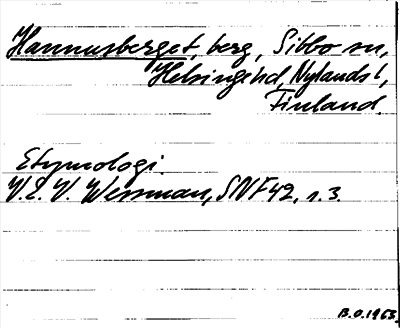 Hannusberget, berg, Sibbo sn,
Helsinge hd, Nylands l,
Finland.
Etymologi.
V.E.V. Wessman, SNF 42, s. 3.
B.O. 1963.